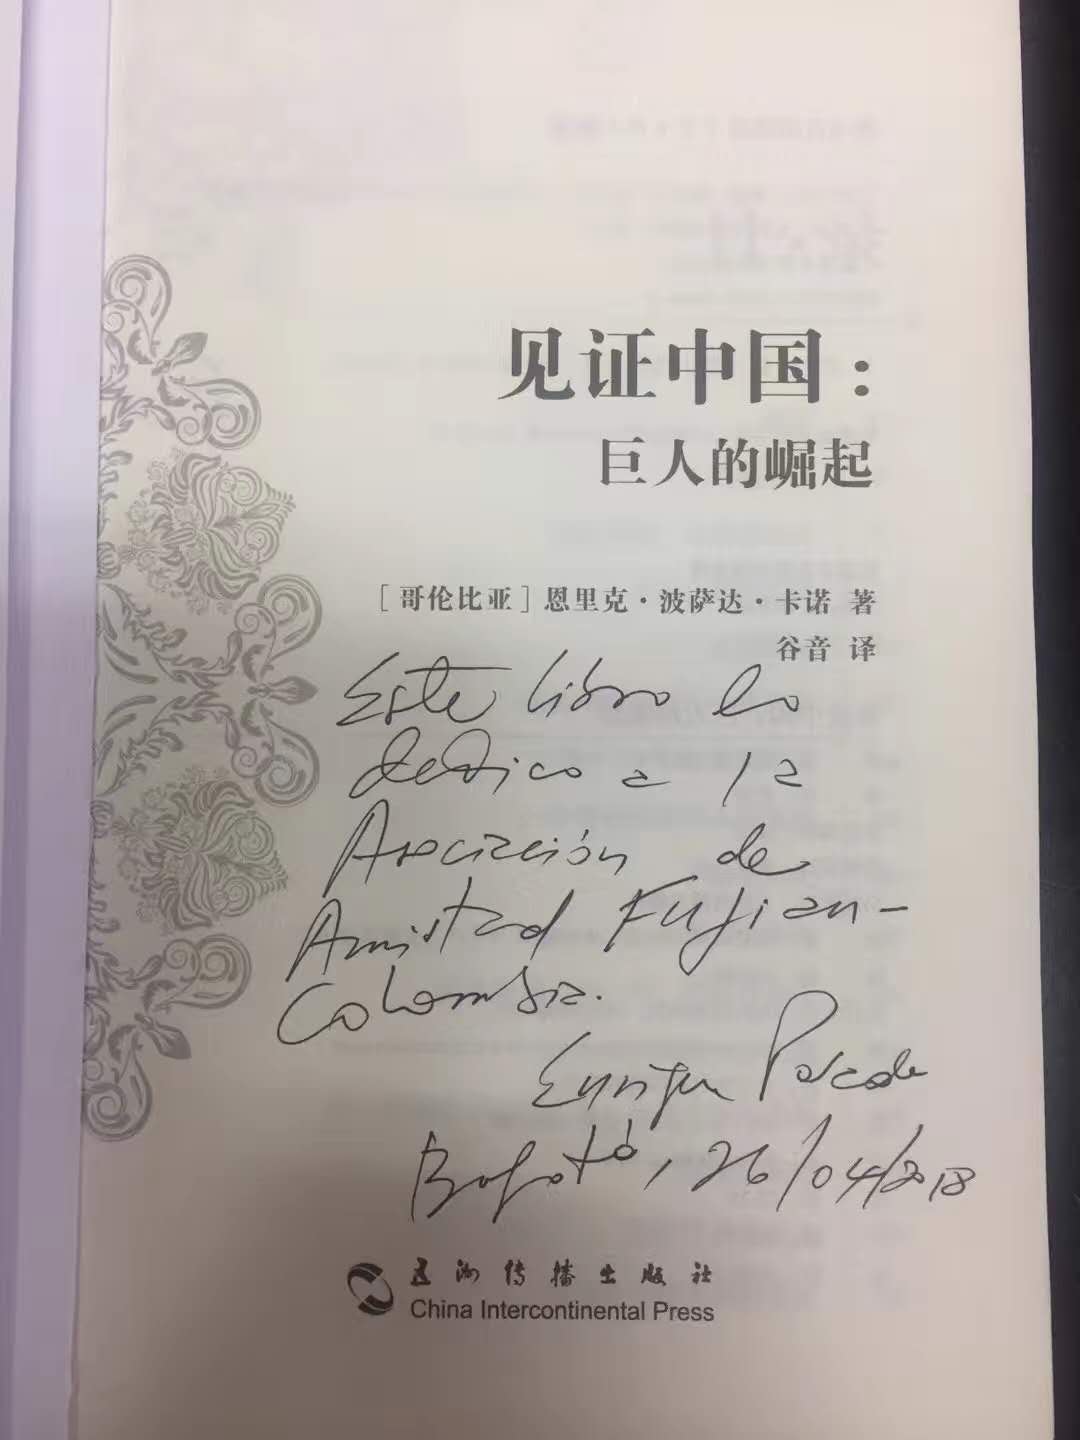 见证中国：
巨人的崛起
［哥伦比亚］恩里克·波萨达·卡诺 著
谷音 译
Este libro lo
dedico a la
Asociación de
Amistad Fujian-
Colombia.
Enrique Posada
Bogotá, 26/04/2018
五洲传播出版社
China Intercontinental Press